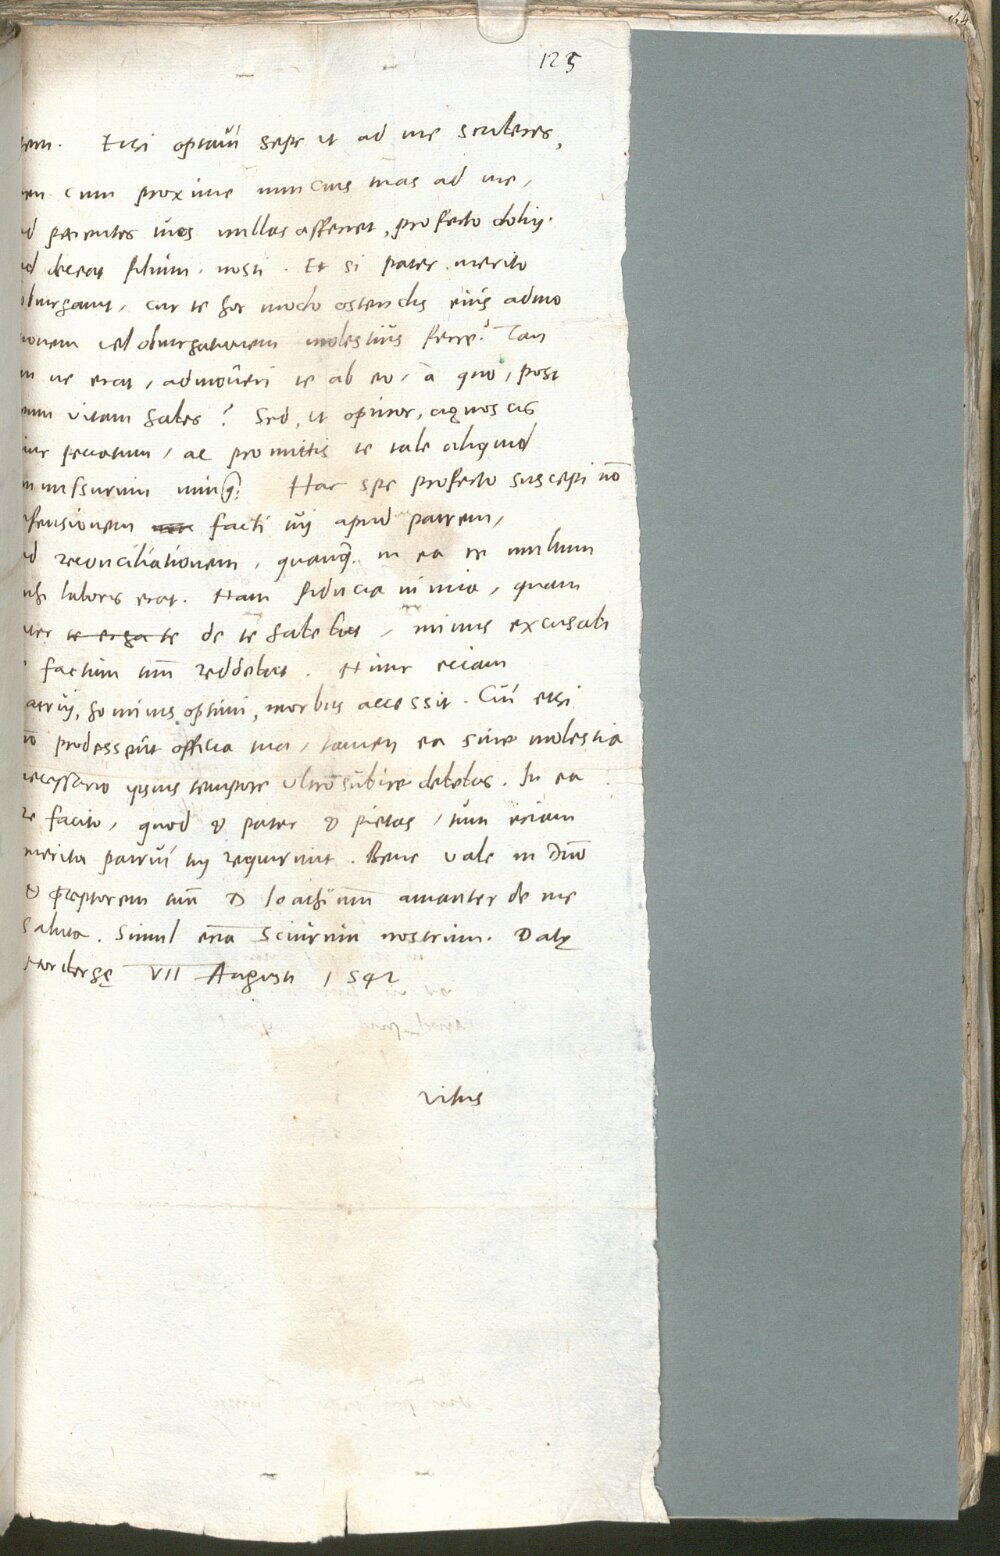 125
tem. Etsi optaui sepe ut ad me scriberes,
cum proxime nuncius tuas ad me,
ad parentes tuos nullas afferret, profecto dolui.
id deceat filium, nosti. Et si pater merito
obiurgauit, cur te hoc modo ostendis eius admo
nitionem uel obiurgationem molestius ferre? Tan
ne erat, admoueri te ab eo, a quo, post
uitam habes? Sed, ut opinor, agnoscis
peccatum, ac promittis te tale aliquid
missurum nunq̃. Hac spe profecto suscepi nō
offensionem facti tui apud patrem,
ad reconciliationem, quanq̃ in ea re multum
mihi laboris erat. Nam fiducia nimia, quam
pater te erga te de te habebat, minus excusabi
factum tuū reddebat. Et nunc eciam
patrui, hominis optimi, morbus accessit. Cui etsi
nō prodessent officia tua, tamen ea sine molestia
necessario ipsius tempore ultro subire debebas. In ea
re facito, quod & pater & pietas, tum eciam
merita patrui tui requirunt. Bene uale in Dn̄o
& p̄ceptorem tuū D Ioachimū amanter de me
saluta. Simul eciā Sciurum nostrum. Datę
Norbergę VII Augusti 1542
Vitus